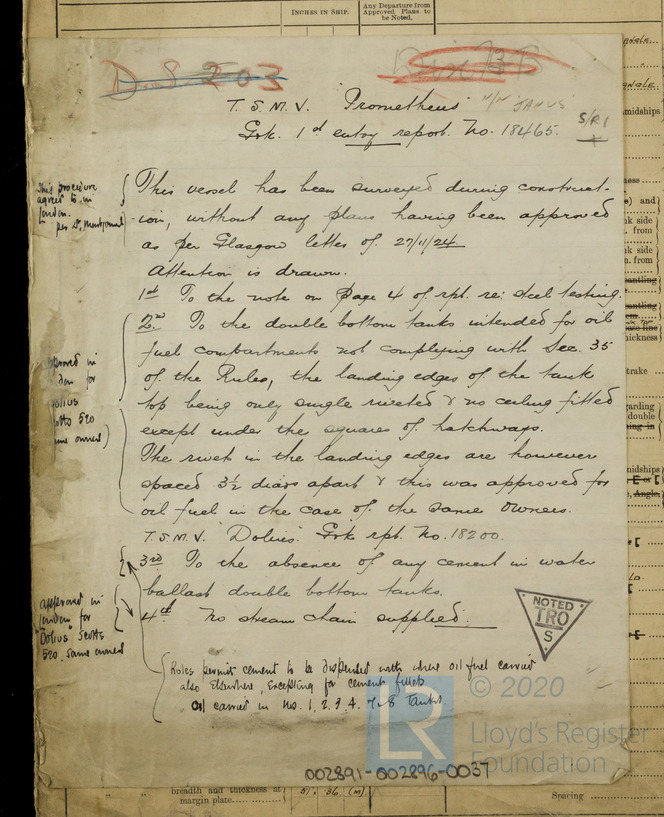 INCHES IN SHIP.
Any Departure from
Approved Plans to
be Noted.
D.S. 203
T. S. M. V. "Prometheus" N/N "JANUS"
Grk. 1st entry report. No. 18465.
S/R1
This procedure
agreed to in
London.
per
This vessel has been surveyed during construct-
-ion, without any plans having been approved
as per Glasgow letter of 27/11/24
Attention is drawn.
1st To the note on page 4 of rpt. re: steel testing.
2nd To the double bottom tanks intended for oil
fuel compartments not complying with Sec. 35
of the Rules, the landing edges of the tank
top being only single riveted & no ceiling fitted
except under the squares of hatchways.
The rivets in the landing edges are however
spaced 3½ diars apart & this was approved for
oil fuel in the case of the same Owners.
T.S.M.V. "Dolius". Grk rpt. No. 18200.
3rd To the absence of any cement in water
ballast double bottom tanks.
4th No stream chain supplied.
in
for
520
same owners)
approved in
London for
"Dolius" Scotts
520. same owners
NOTED
TRO
S
Rules permit cement to be dispensed with where oil fuel carried
also elsewhere, excepting for cement fillets
Oil carried in Nos. 1, 2, 3, 4, 7 & 8 Tanks
LR
© 2020
Lloyd's Register
Foundation
002891-002896-0037
breadth and thickness at
margin plate
51. 36 (M).
Spacing